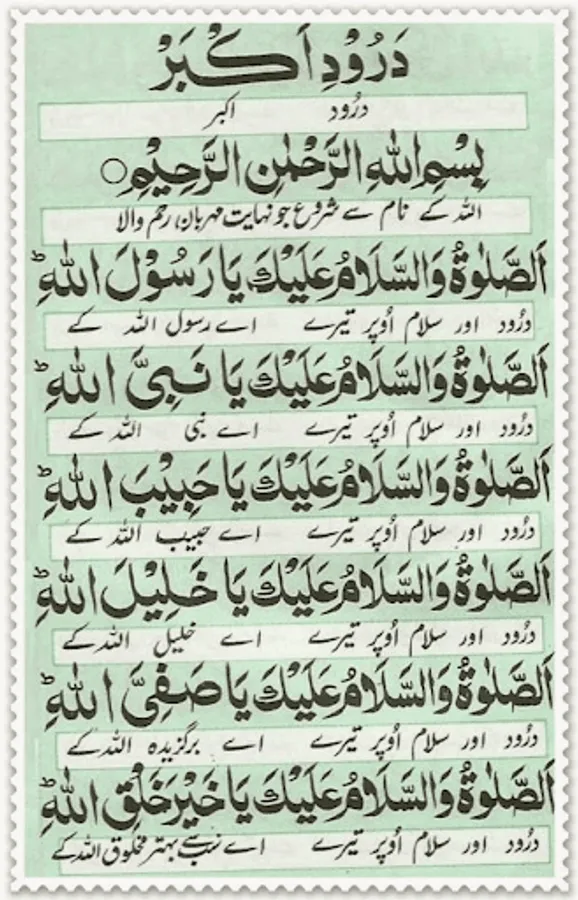 دَرُوْدِ اَكْبَرْ
درُود اکبر
بِسْمِ اللهِ الرَّحْمٰنِ الرَّحِيْمِ ○
اللہ کے نام سے شروع جو نہایت مہربان، رحم والا
اَلصَّلٰوةُ وَالسَّلَامُ عَلَيْكَ يَا رَسُوْلَ اللهِ ؕ
درُود اور سلام اُوپر تیرے اے رسول اللہ کے
اَلصَّلٰوةُ وَالسَّلَامُ عَلَيْكَ يَا نَبِىَّ اللهِ ؕ
درُود اور سلام اُوپر تیرے اے نبی اللہ کے
اَلصَّلٰوةُ وَالسَّلَامُ عَلَيْكَ يَا حَبِيْبَ اللهِ ؕ
درُود اور سلام اُوپر تیرے اے حبیب اللہ کے
اَلصَّلٰوةُ وَالسَّلَامُ عَلَيْكَ يَا خَلِيْلَ اللهِ ؕ
درُود اور سلام اُوپر تیرے اے خلیل اللہ کے
اَلصَّلٰوةُ وَالسَّلَامُ عَلَيْكَ يَا صَفِىَّ اللهِ ؕ
درُود اور سلام اُوپر تیرے اے برگزیدہ اللہ کے
اَلصَّلٰوةُ وَالسَّلَامُ عَلَيْكَ يَا خَيْرَ خَلْقِ اللهِ ؕ
درُود اور سلام اُوپر تیرے اے سب سے بہتر مخلوق اللہ کے